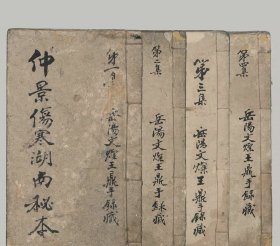 仲景傷寒湖南秘本
第一集
岳陽文煋王鼎手錄藏
第二集
岳陽文煋王鼎手錄藏
第三集
岳陽文煋王鼎手錄藏
第四集
岳陽文煋王鼎手錄藏